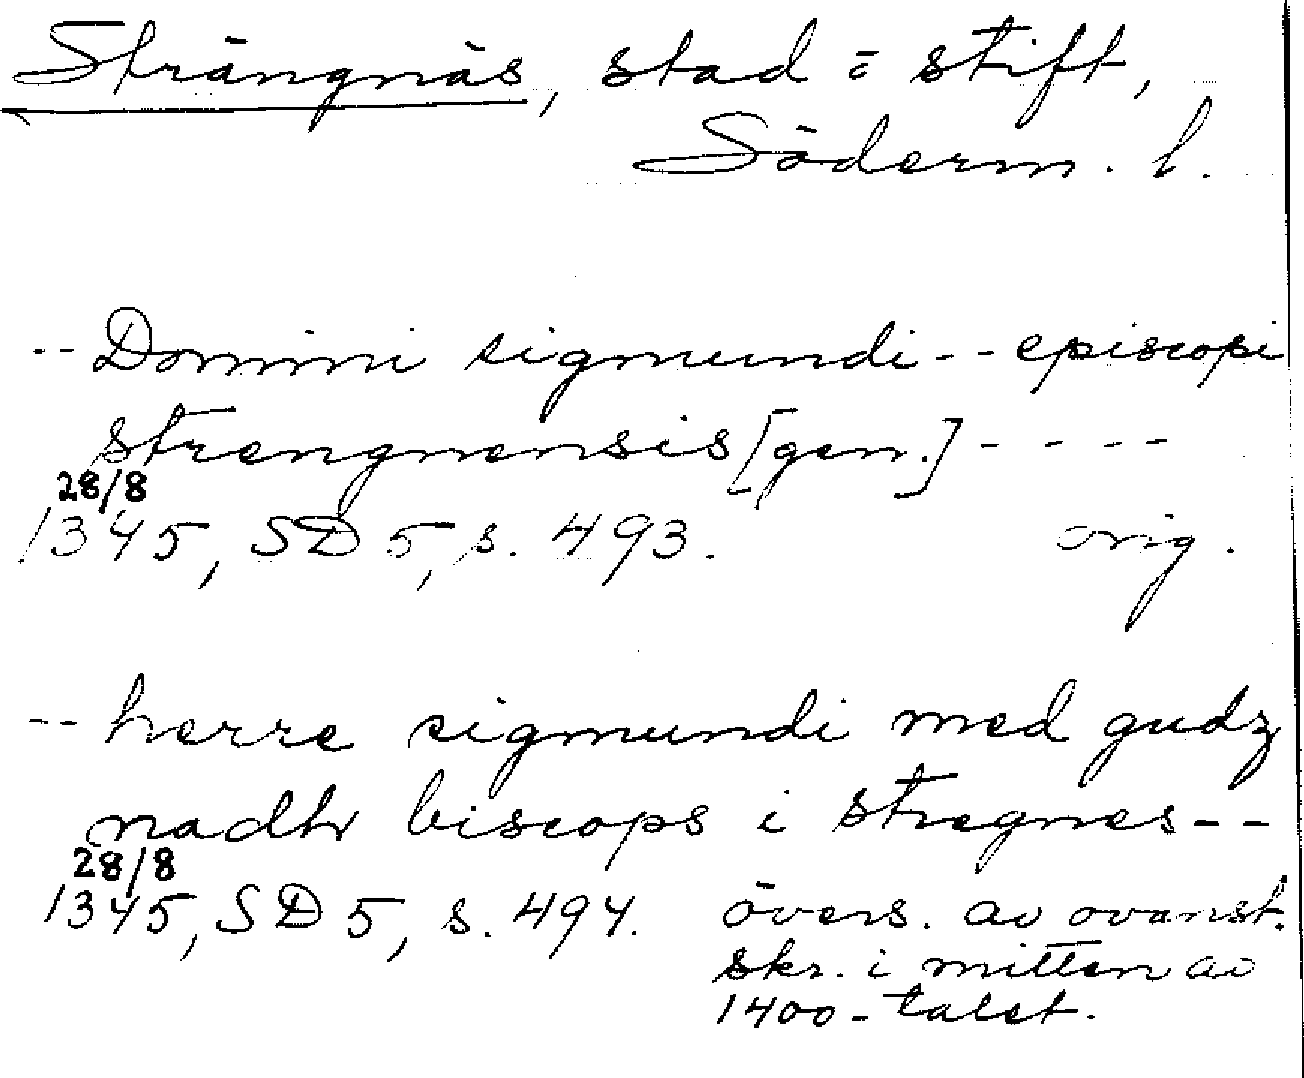 Strängnäs, stad o stift,
Söderm. l.
-- Domini sigmundi -- episcopi
strengnensis [gen.] - - - -
28/8
1345, SD 5, s. 493. orig.
-- herre sigmundi med gudz
nadhr biscops i stregnes --
28/8
1345, SD 5, s. 494. övers. av ovanst.
skr. i mitten av
1400-talet.